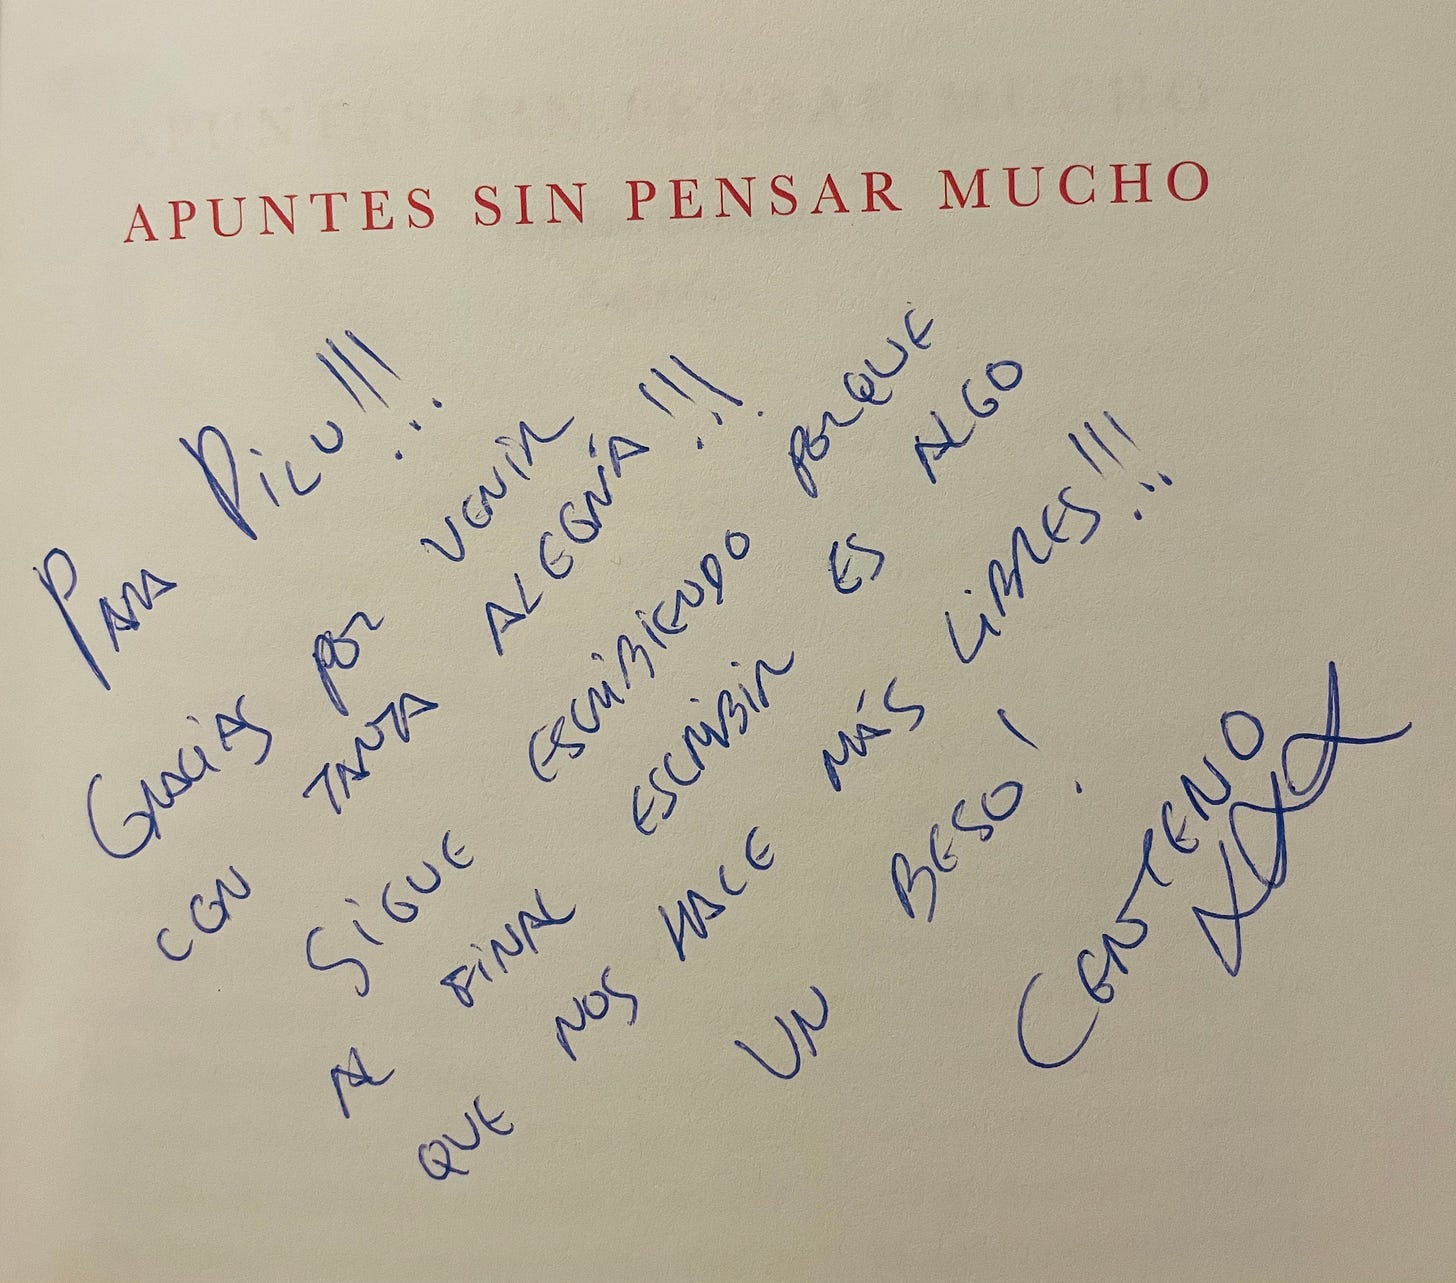 APUNTES SIN PENSAR MUCHO
PARA PILU!!!
GRACIAS POR VENIR
CON TANTA ALEGRÍA!!!
SIGUE ESCRIBIENDO PORQUE
AL FINAL ESCRIBIR ES ALGO
QUE NOS HACE MÁS LIBRES!!!
UN BESO!
CENTENO